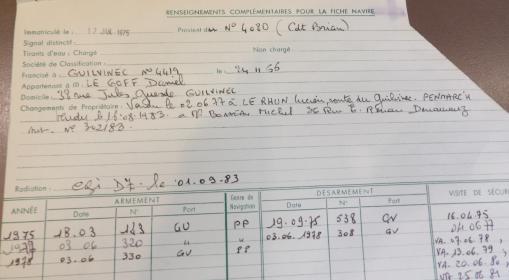 RENSEIGNEMENTS COMPLÉMENTAIRES POUR LA FICHE NAVIRE
Immatriculé le : 17 JUIL 1975 Provient du N° 4080 (Cdt Brian)
Signal distinctif :
Tirants d'eau : Chargé Non chargé :
Société de Classification :
Francisé à GUILVINEC N° 4419 le : 24 11 56
Appartenant à m : LE GOFF Daniel
Domicile : 32 rue Jules Guesde GUILVINEC
Changements de Propriétaire : Vendu le 02.06.77 à LE RHUN Lucien, route du Guilvinec. PENMARC'H
Vendu le 18.08.1983 à Mr Michel 36 Rue E. Renan Douarnenez
N° 302/83.
Radiation : DZ le 01.09.83
ANNÉE ARMEMENT Genre de Navigation DÉSARMEMENT VISITE DE SÉCUR
Date N° Port Date N° Port
1975 18.03 123 GV PP 19.09.75 538 GV 16.04.75
1977 03.06 320 " " 03.06.1978 308 GV 04.06.77
1978 03.06 330 GV PP VA. 07.06.78
VA. 13.06.79
VA. 20.06.80
VA. 25.06.81